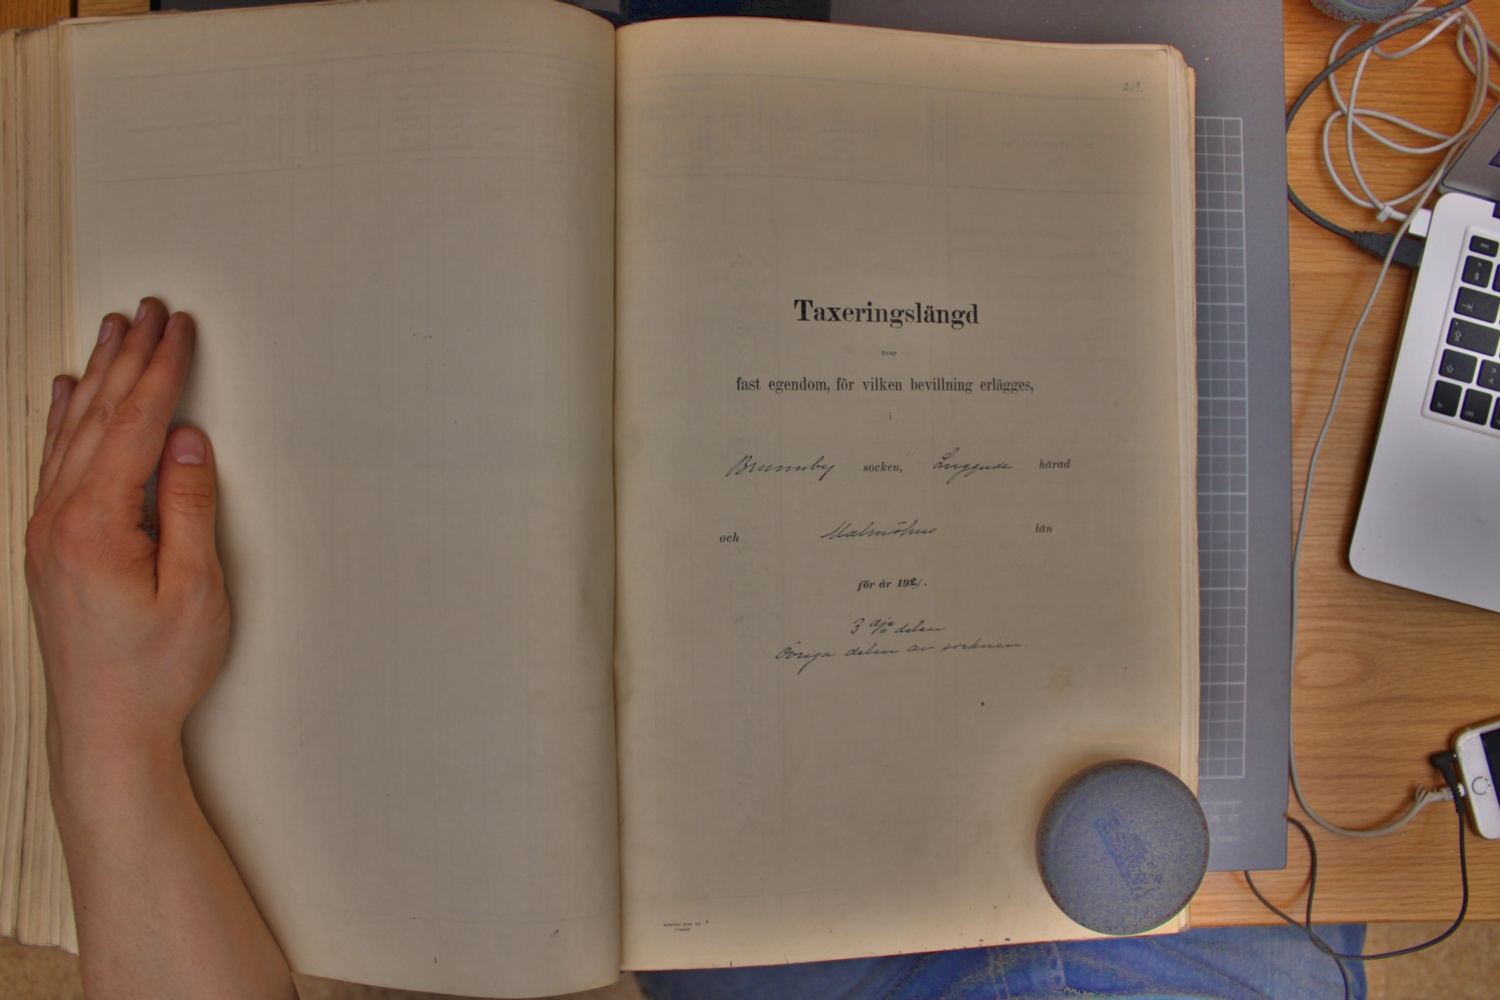 217.
Taxeringslängd
över
fast egendom, för vilken bevillning erlägges,
i
Brunnby socken, Luggude härad
och Malmöhus län
för år 1921.
3 dje delen
Övriga delen av socknen.